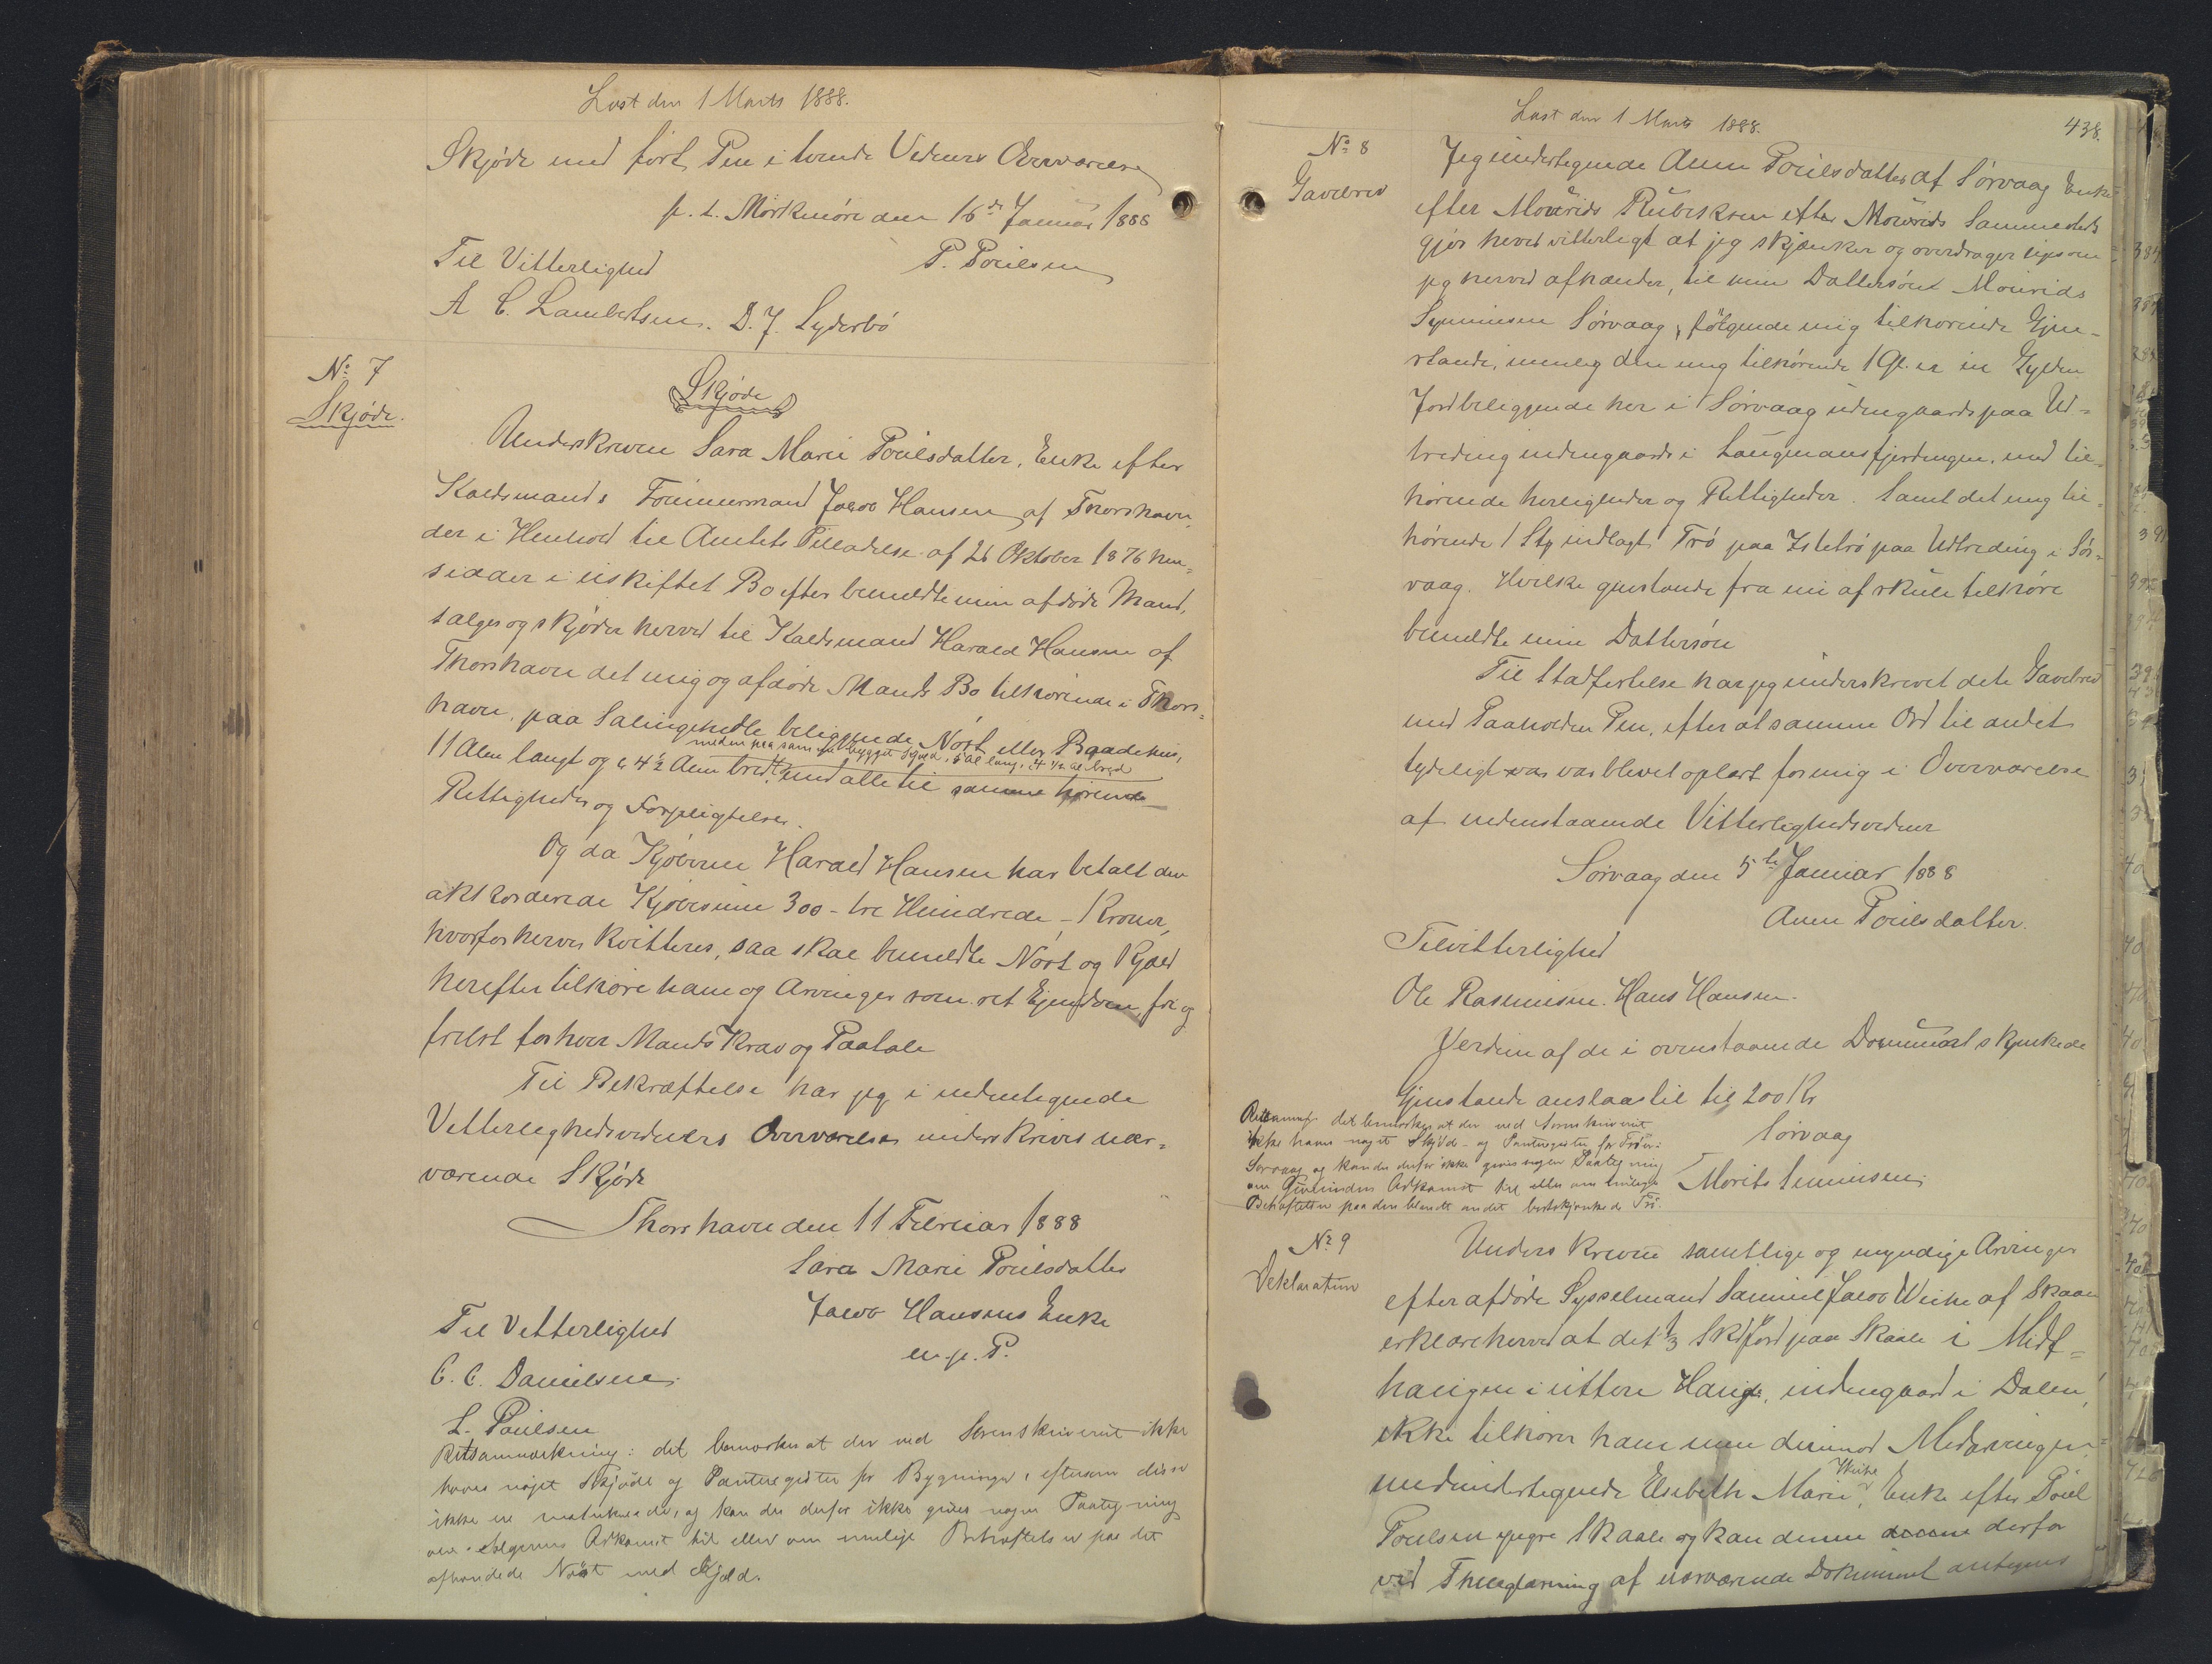 Læst den 1 Marts 1888.
Skjøde med ført Pen i tvende Vidners Overværelse
p. t. Mørkenøre den 16de Januar 1888
P. Poulsen
Til Vitterlighed
A C. Lambertsen. D. J. Lyderbö
No 7
Skjøde.
Skjøde
Underskreven Sara Marie Poulsdatter, Enke efter
Kaldsmand Jacob Hansen af Thorshavn,
der i Henhold til Amtets Tilladelse af 26 Oktober 1876 hen=
sidder i uskiftet Bo efter bemeldte min afdøde Mand,
sælger og skjøder herved til Kaldsmand Harald Hansen af
Thorshavn det mig og afdøde Mands Bo tilhørende i Thors=
havn, paa beliggende Nøst eller Baadehus,
11 Alen langt og 4½ Alen bredt, med alle til samme hørende
meden paa samme bygget Kjeld, 5 al lang, 4 1/2 al bred
Rettigheder og Forpligtelser.
Og da Kjøberen Harald Hansen har betalt den
akkorderede Kjøbesum 300 - tre Hundrede - Kroner,
hvorfor herved kvitteres, saa skal bemeldte Nøst og Kjæld
herefter tilhøre ham og Arvinger som ret Ejendom fri og
frelst for hver Mands Krav og Paatale
Til Bekræftelse har jeg i undertegnede
Vitterlighedsvidners Overværelse underskrevet nær=
værende Skjøde
Thorshavn den 11 Februar 1888
Sara Marie Poulsdatter
Jacob Hansens Enke
m. p. P.
Til Vitterlighed
C. C. Danielsen.
L. Poulsen
Retsanmærkning: det bemærkes at der ved Sorenskriveriet ikke
haves noget Skjøde og Panteregister for Bygninger, eftersom disse
ikke ere matrikulerede, og kan der derfor ikke gives nogen Paategning
om Sælgerens Adkomst til eller om mulige Behæftelser paa det
afhændede Nöst med Kjæld.
Læst den 1 Marts 1888.
438.
No 8
Gavebrev
Jeg undertegnede Anne Poulsdatter af Sørvaag Enke
efter Mourids efter Mourids Sammesteds
gjør herved vitterligt at jeg skjænker og overdrager ligesom
jeg herved afhænder, til min Dattersøn Mourids
Sørvaag, følgende mig tilhørende Gjen=
stande, nemlig den mig tilhørende 1 Gl. er en Gylden
Jord beliggende her i Sørvaag udengaards paa Ud=
treding indengaards i Laugmansfjerdingen, med til=
hørende herligheder og Rettigheder. Samt det mig til=
hørende 1 Stk indlagt Trø paa paa Udtreding i Sør=
vaag. Hvilke gjenstande fra nu af skulle tilhøre
bemeldte min Dattersøn
Til Stadfestelse har jeg underskrevet dete Gavebrev
med Paaholden Pen, efter at samme Ord til andet
tydeligt var blevet oplæst for mig i Overværelse
af nedenstaaende Vitterlighedsvidner
Sørvaag den 5te Januar 1888
Anne Poulsdatter.
Tilvitterlighed
Ole Rasmussen. Hans Hansen.
Verdien af de i ovenstaaende Document skjenkede
Gjenstande anslaas til til 200 Kr
Sørvaag
Retsanm: det bemærkes at der ved Sorenskriveriet
ikke haves noget Skjöde- og Panteregister for Trøer i
Sørvaag og kan der derfor ikke gives nogen Paategning
om Giverindens Adkomst til eller om mulige
Behæftelser paa den blandt andet bortskjænkede Trö.
No 9
Deklaration
Underskrevne samtlige og myndige Arvinger
efter afdøde Sysselmand Samuel Jacob Weihe af Skaale
erklære herved at det 1/3 Skd Jord paa Skaale i Midt=
haugen i uttere Hauge, indengaard i Dalen,
ikke tilhører ham men derimod Medarvingen
medundertegnede Elsebeth Marie Weihe, Enke efter Poul
Poulsen Skaale og kan denne derfor
ved Thinglæsning af nærværende Dokument antegnes